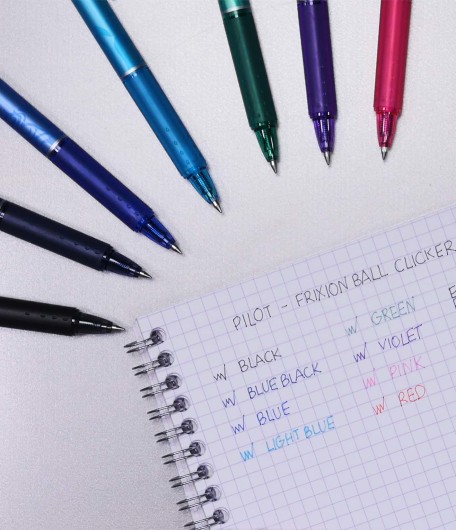 PILOT - FRIXION BALL CLICKER
BLACK
BLUE BLACK
BLUE
LIGHT BLUE
GREEN
VIOLET
PINK
RED